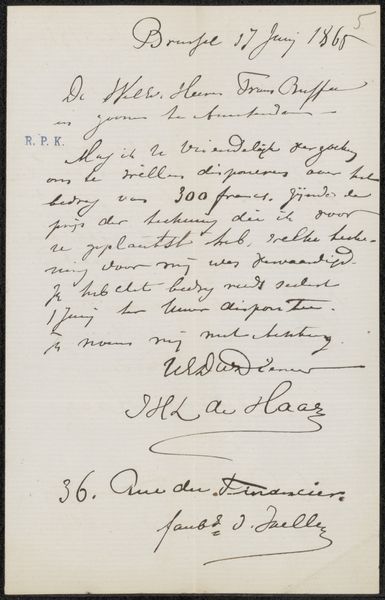 Brussel 17 Junij 1865
5
De WelEd. Heeren Frans Buffa
en zonen te Amsterdam
R. P. K.
Mag ik U vriendelijk verzoeken
om te willen disponeren over het
bedrag van 300 francs. zijnde de
prijs der teekening die ik voor
U geplaatst heb. welke teeke-
ning door mij was vervaardigd.
Ik heb dit bedrag reeds sedert
1 Junij ter Uwer dispositie.
Ik noem mij met achting
UEDWDienaar
JHL de Haas
36. Rue du Financier